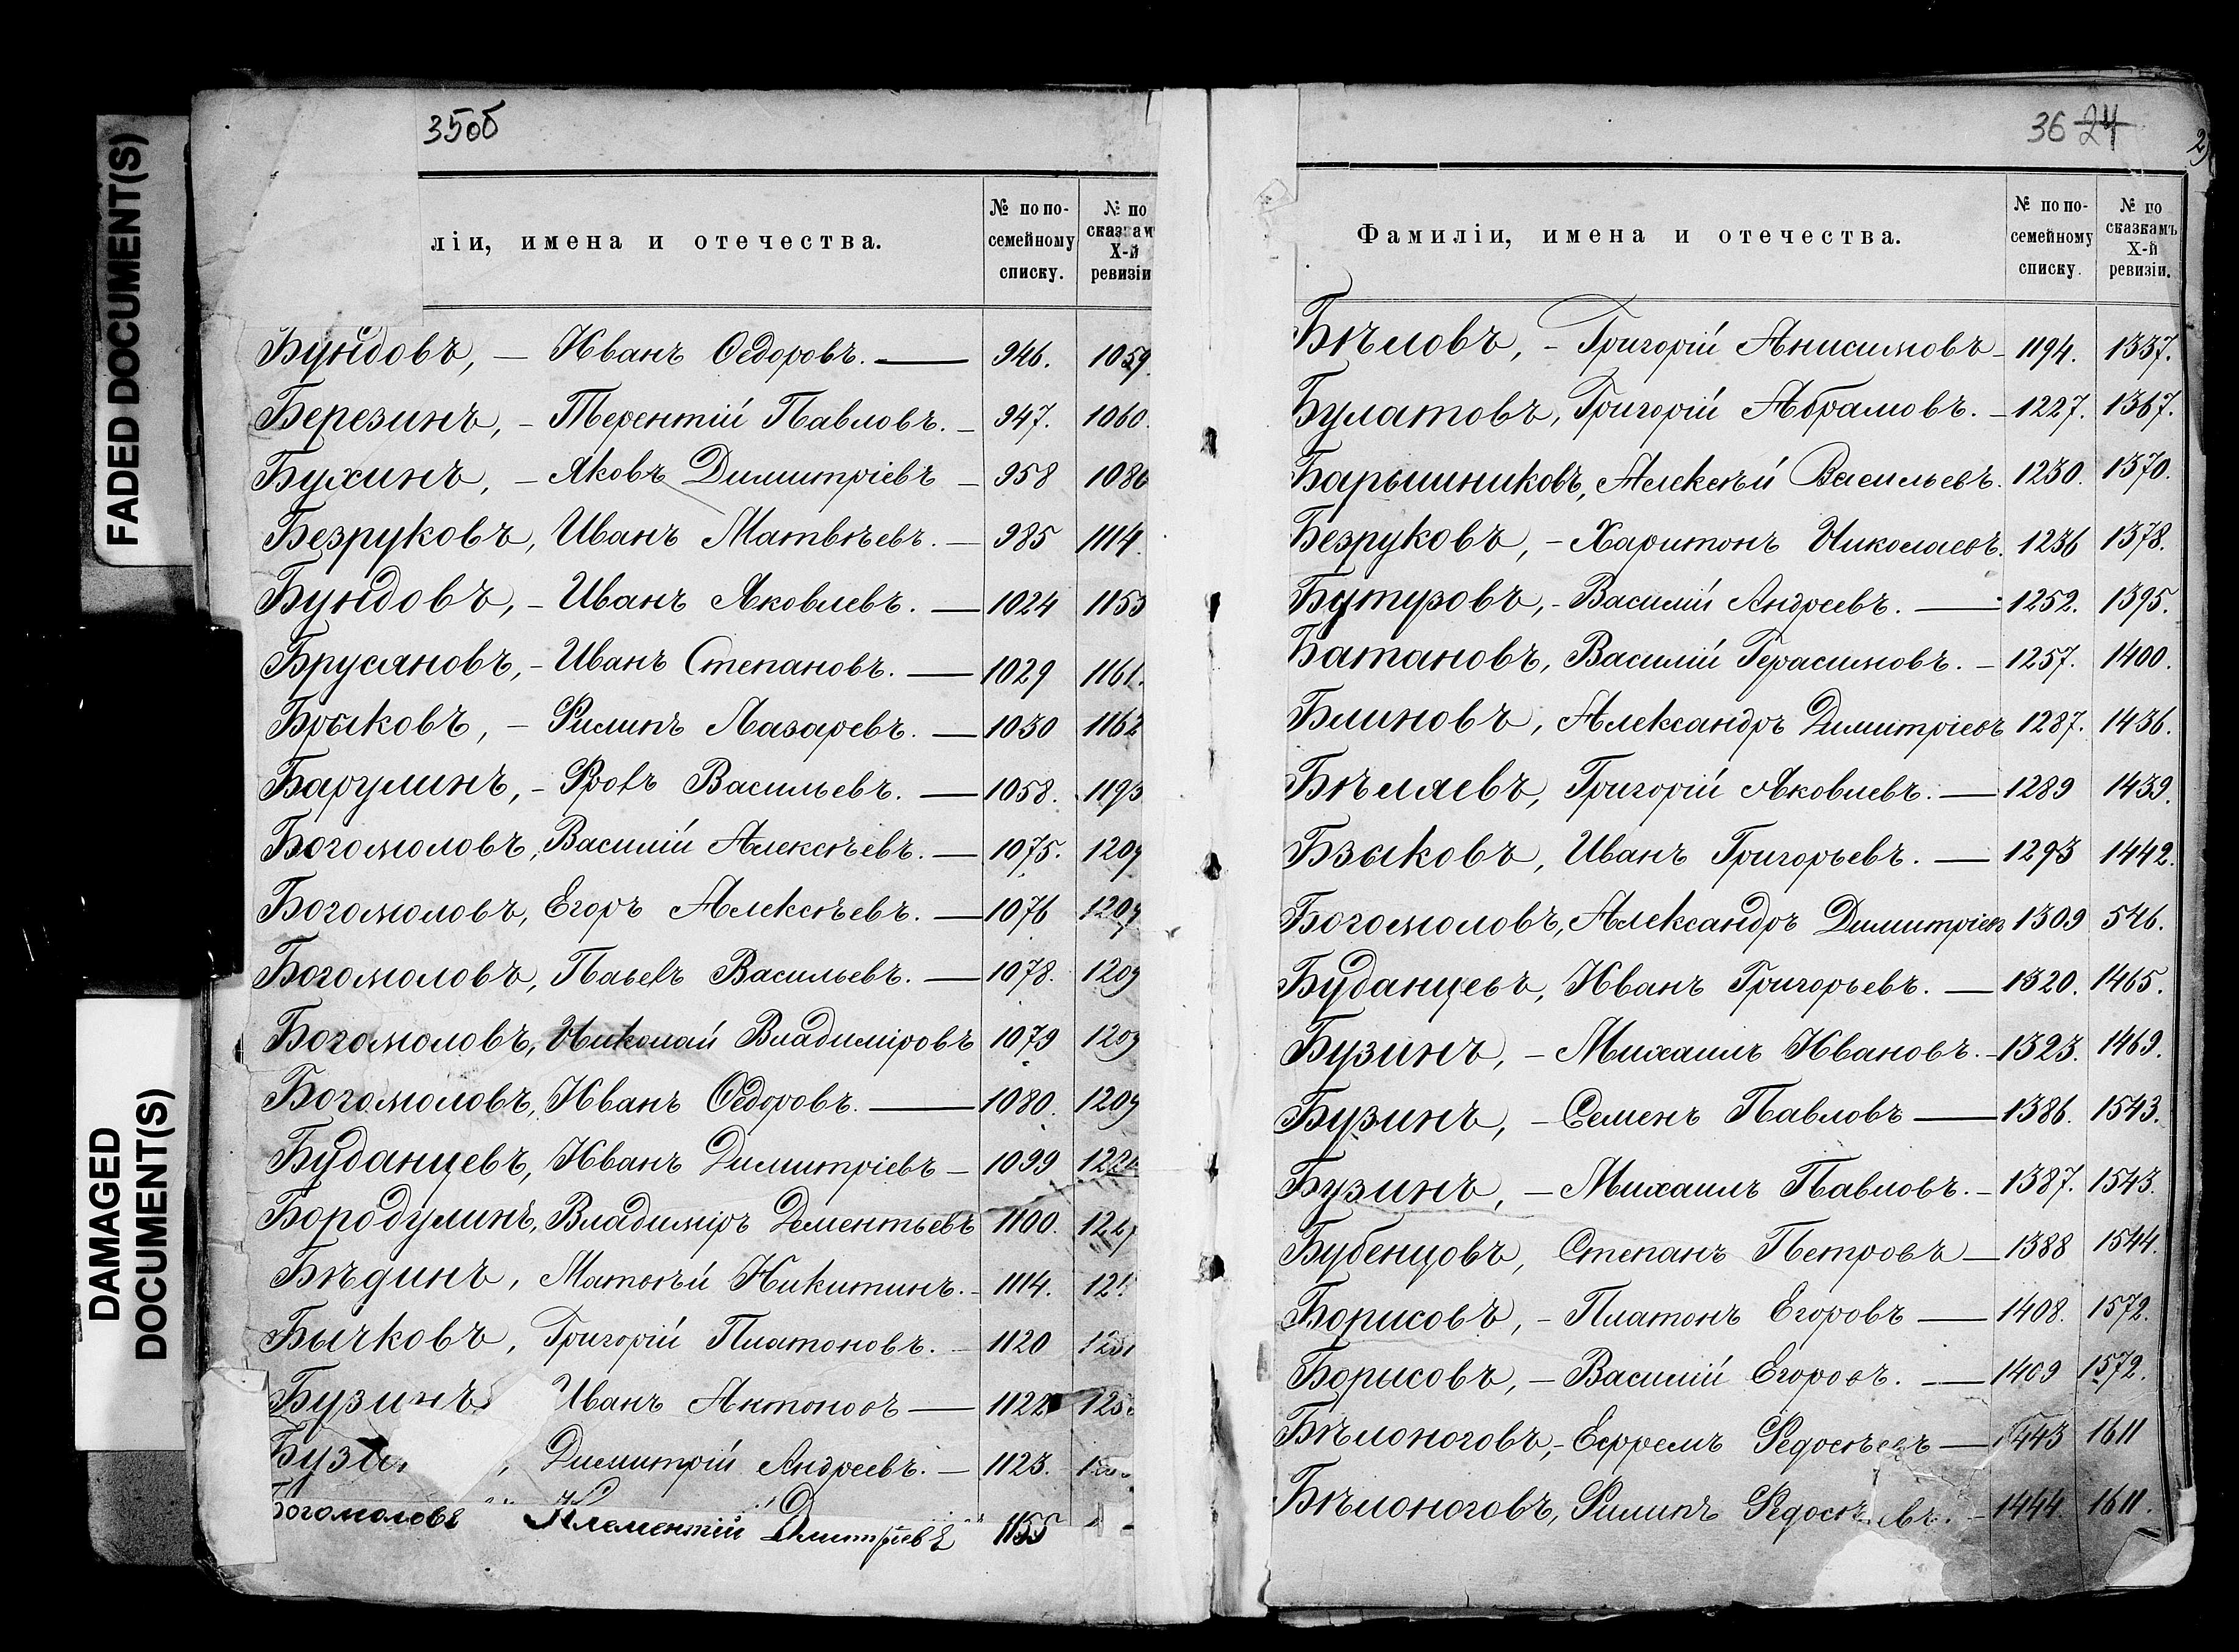 FADED DOCUMENT(S)
DAMAGED
DOCUMENT(S)
35об
ліи, имена и отечества. № по по-семейному списку. № по сказкам X-й ревизіи
Бундовъ, — Иванъ Ѳедоровъ. — 946. 1059.
Березинъ, — Терентій Павловъ. — 947. 1060.
Бухинъ, — Яковъ Димитріевъ — 958 1086
Безруковъ, Иванъ Матвѣевъ. — 985 1114.
Бундовъ, — Иванъ Яковлевъ. — 1024 1153
Брусяновъ, — Иванъ Степановъ. — 1029 1161.
Брыковъ, — Филипъ Лазаревъ. — 1030 1162
Баргулинъ, — Фролъ Васильевъ. — 1058. 1193
Богомоловъ, Василій Алексѣевъ. — 1075. 1209
Богомоловъ, Егоръ Алексѣевъ. — 1076 1209
Богомоловъ, Павелъ Васильевъ. — 1078. 1209
Богомоловъ, Николай Владиміровъ 1079 1209
Богомоловъ, Иванъ Ѳедоровъ. — 1080. 1209
Буданцевъ, Иванъ Димитріевъ — 1099
Бородулинъ, Владиміръ Дементьевъ 1100. 1227
Бѣдинъ, Матвѣй Никитинъ. — 1114.
Бычковъ, Григорій Платоновъ. — 1120
Бузинъ Иванъ Антоновъ — 1122
Димитрій Андреевъ. — 1123.
Богомоловъ Клементій Дмитріевъ 1155
36 24
Фамиліи, имена и отечества. № по по-семейному списку. № по сказкамъ X-й ревизіи.
Бѣловъ, — Григорій Анисимовъ — 1194. 1337.
Булатовъ, Григорій Абрамовъ. — 1227. 1367.
Барышниковъ, Алексѣй Васильевъ. 1230. 1370.
Безруковъ, — Харитонъ Николаевъ. 1236 1378.
Бутузовъ, — Василій Андреевъ. — 1252. 1395.
Батановъ, Василій Герасимовъ. — 1257. 1400.
Блиновъ, Александръ Димитріевъ 1287. 1436.
Бѣляевъ, Григорій Яковлевъ. — 1289 1439.
Бзыковъ, Иванъ Григорьевъ. — 1293 1442.
Богомоловъ, Александръ Димитріевъ 1309 546.
Буданцевъ, Иванъ Григорьевъ. — 1320. 1465.
Бузинъ, — Михаилъ Ивановъ. — 1323. 1469.
Бузинъ, — Семенъ Павловъ — 1386. 1543.
Бузинъ, — Михаилъ Павловъ. — 1387. 1543.
Бубенцовъ, Степанъ Петровъ — 1388 1544.
Борисовъ, — Платонъ Егоровъ — 1408. 1572.
Борисовъ, — Василій Егоровъ. — 1409 1572.
Бѣлоноговъ, — Ефремъ Ѳедосѣевъ — 1443 1611
Бѣлоноговъ, Филипъ Ѳедосѣевъ. — 1444. 1611.